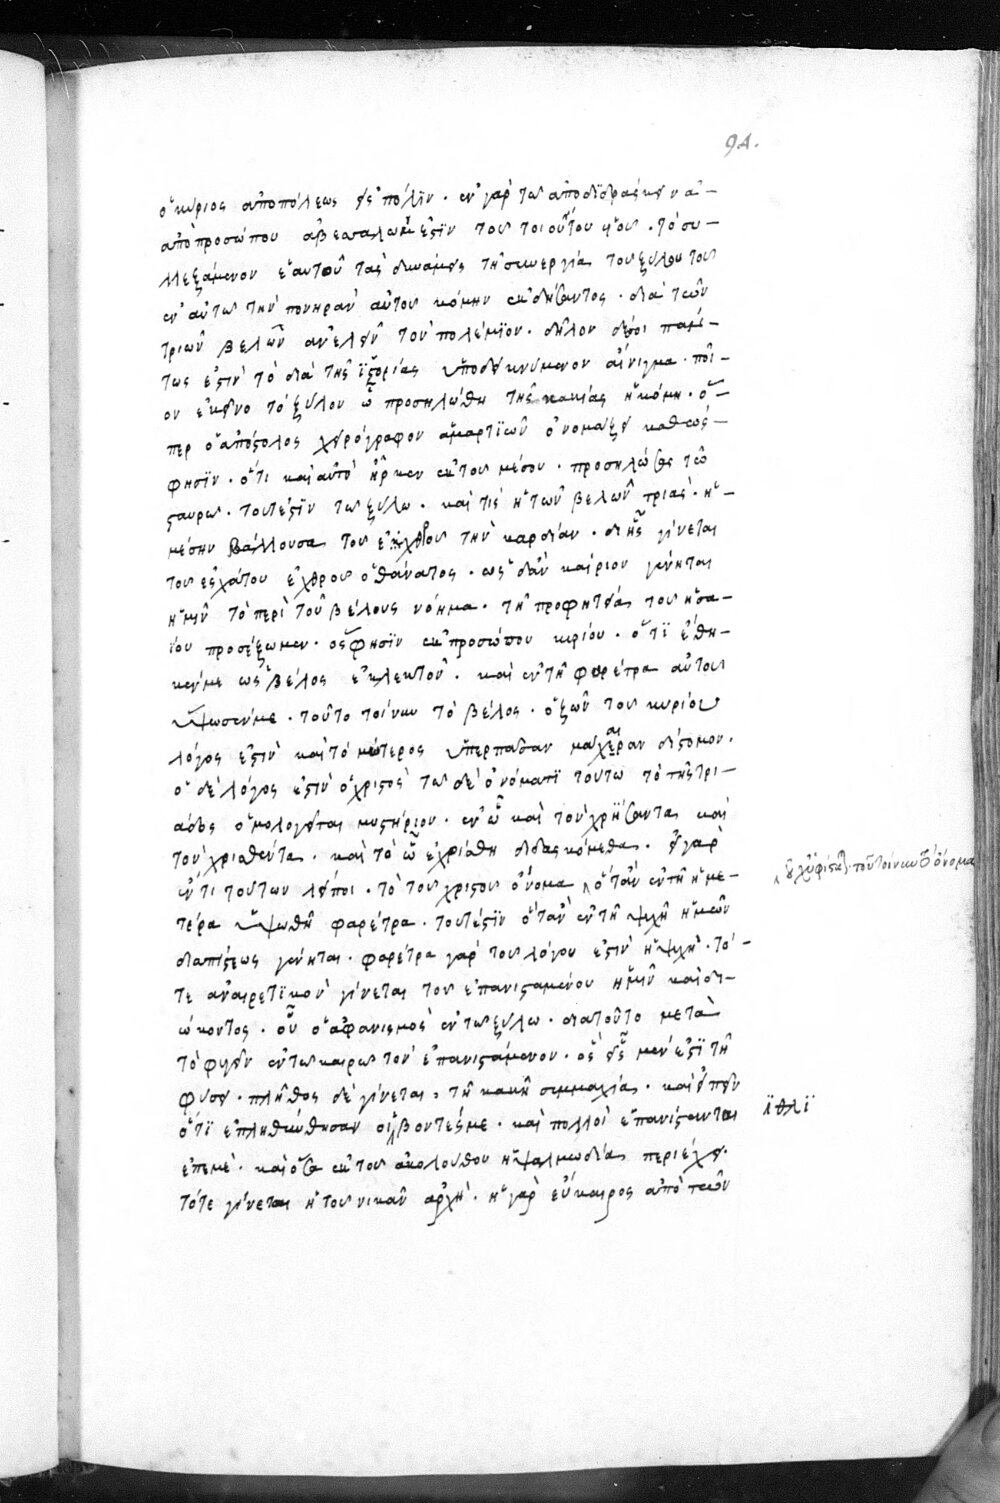 94.
ὁ κύριος ἀπὸ πόλεως εἰς πόλϊν. ἐν γὰρ τῶ ἀποδϊδράσκειν ἀ—
ἀπὸ προσώπου ἀβεσαλωμ ἐστϊν τοῦ τοιούτου υἱοῦ. τὸ συ—
λλεξάμενον ἑαυτοῦ τὰς δυνάμεις τῆ συνεργία τοῦ ξύλου τοῦ
ἐν αὐτῶ τὴν πονηρὰν αὐτοῦ κόμην ἐκδήσαντος. διὰ τῶν
τριῶν βελῶν ἀνελεῖν τὸν πολέμϊον. δῆλον δέ σοι πάν—
τως ἐστὶν τὸ διὰ τῆς ϊστορίας ὑποδεικνύμενον αἴνιγμα. ποῖ—
ον ἐκεῖνο τὸ ξύλον ὧ προσηλώθη τῆς κακίας ἡ κόμη. ὅ—
περ ὁ ἀπόστολος χειρόγραφον ἁμαρτϊῶν ὀνομάζει καθώς—
φησϊν. ὅτι καὶ αὐτὸ ἦρκεν ἐκ τοῦ μέσου. προσηλώσας τῶ
σταυρῶ. τουτέστϊν τῶ ξύλω. καὶ τίς ἡ τῶν βελῶν τριάς. ἡ—
μέσην βάλλουσα τοῦ ἐχθροῦ τὴν καρδίαν. δι ἧς γίνεται
τοῦ ἐσχάτου ἐχθροῦ ὁ θάνατος. ὡς δ ἂν καίριον γένηται
ἡμῖν τὸ περὶ τοῦ βέλους νόημα. τῆ προφητεία τοῦ ἡσα—
ίου προσέξωμεν. ὅς φησϊν ἐκ προσώπου κυρίου. ὅτϊ ἔθη—
κέν με ὡς βέλος ἐκλεκτὸν. καὶ ἐν τῆ φαρέτρα αὐτοῦ
ἔκρυψέν με. τοῦτο τοίνυν τὸ βέλος. ὁ ζῶν τοῦ κυρίου
λόγος ἐστὶν καὶ τομώτερος ὑπὲρ πᾶσαν μάχαιραν δίστομον.
ὁ δὲ λόγος ἐστὶν ὁ χριστὸς τῶ δὲ ὀνόματϊ τούτω τὸ τῆς τρι—
άδος ὁμολογεῖται μυστήριον. ἐν ὧ καὶ τὸν χρΐσαντα καὶ
τὸν χρισθέντα. καὶ τὸ ὧ ἐχρίσθη διδασκόμεθα. εἰ γὰρ
ἕν τι τούτων λείποι. τὸ τοῦ χριστοῦ ὄνομα ὅταν ἐν τῆ ἡμε—
τέρα κρυφθῆ φαρέτρα. τουτέστϊν ὅταν ἐν τῆ ψυχῆ ἡμῶν
διὰ πίστεως γένηται. φαρέτρα γὰρ τοῦ λόγου ἐστὶν ἡ ψυχὴ. τό—
τε ἀναιρετϊκὸν γίνεται τοῦ ἐπανισταμένου ἡμῖν καὶ δι—
ώκοντος. οὗ ὁ ἀφανισμὸς ἐν τῶ ξύλω. διὰ τοῦτο μετὰ
τὸ φυγεῖν ἐν τῶ καιρῶ τὸν ἐπανιστάμενον. ὃς εἷς μέν ἐστϊ τῆ
φύσει. πλῆθος δὲ γίνεται, τῆ κακῆ συμμαχία. καὶ εἰπεῖν
ὅτϊ ἐπληθύνθησαν οἱ βοντές με. καὶ πολλοὶ ἐπανίστανται
ἐπ ἐμέ. καὶ ὅσα ἐκ τοῦ ἀκολούθου ἡ ψαλμωδία περιέχει.
τότε γίνεται ἡ τοῦ νικᾶν ἀρχὴ. ἡ γὰρ εὔκαιρος ἀπὸ τῶν
οὐχ ὑφίσταται. τοῦτο τοίνυν τὸ ὄνομα
λ θλϊ